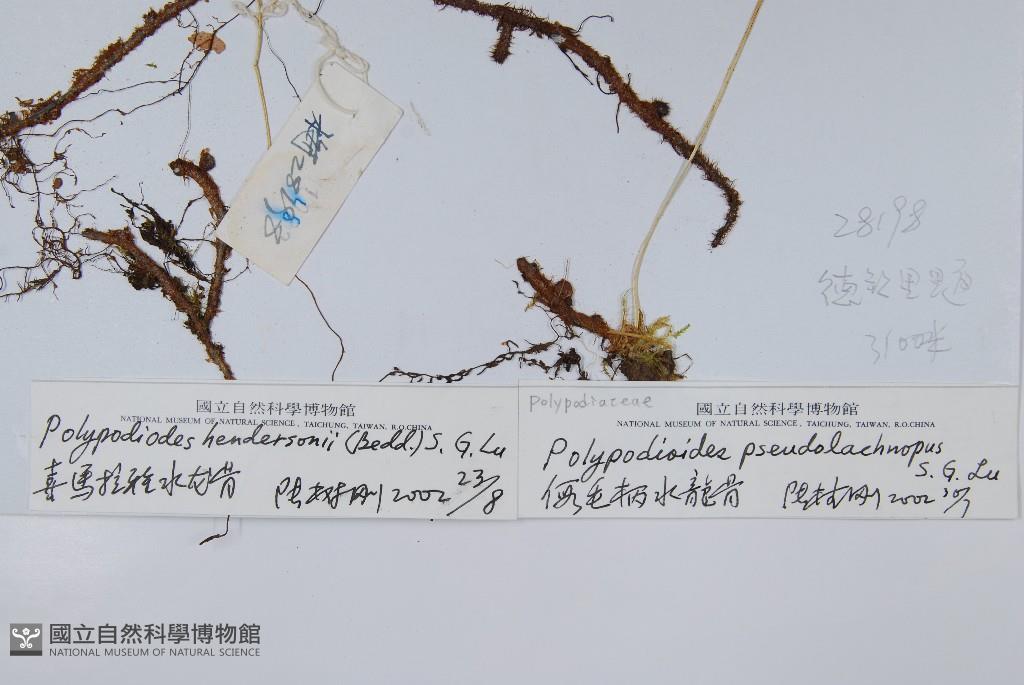 28198
德欽里題
3100米
國立自然科學博物館
NATIONAL MUSEUM OF NATURAL SCIENCE, TAICHUNG, TAIWAN, R.O.CHINA
Polypodiodes hendersonii (Bedd.) S. G. Lu
喜馬拉雅水龙骨 2002 23/8
Polypodiaceae
國立自然科學博物館
NATIONAL MUSEUM OF NATURAL SCIENCE, TAICHUNG, TAIWAN, R.O.CHINA
Polypodioides pseudolachnopus
S. G. Lu
假毛柄水龍骨 2002
國立自然科學博物館
NATIONAL MUSEUM OF NATURAL SCIENCE